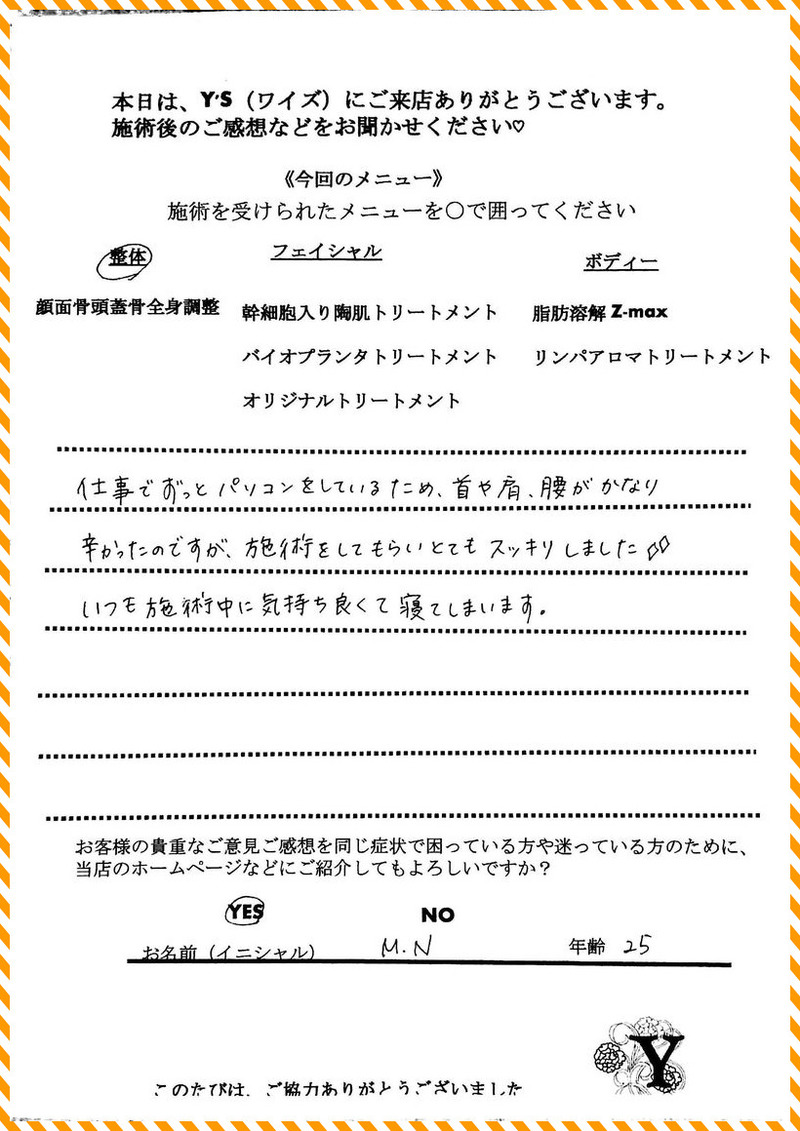 本日は、Y'S（ワイズ）にご来店ありがとうございます。
施術後のご感想などをお聞かせください♡
《今回のメニュー》
施術を受けられたメニューを〇で囲ってください
整体
フェイシャル
ボディー
顔面骨頭蓋骨全身調整
幹細胞入り陶肌トリートメント
脂肪溶解 Z-max
バイオプランタトリートメント
リンパアロマトリートメント
オリジナルトリートメント
仕事でずっとパソコンをしているため、首や肩、腰がかなり
辛かったのですが、施術をしてもらいとてもスッキリしました
いつも施術中に気持ち良くて寝てしまいます。
お客様の貴重なご意見ご感想を同じ症状で困っている方や迷っている方のために、
当店のホームページなどにご紹介してもよろしいですか？
YES NO
お名前（イニシャル） M.N 年齢 25
Y
このたびは、ご協力ありがとうございました